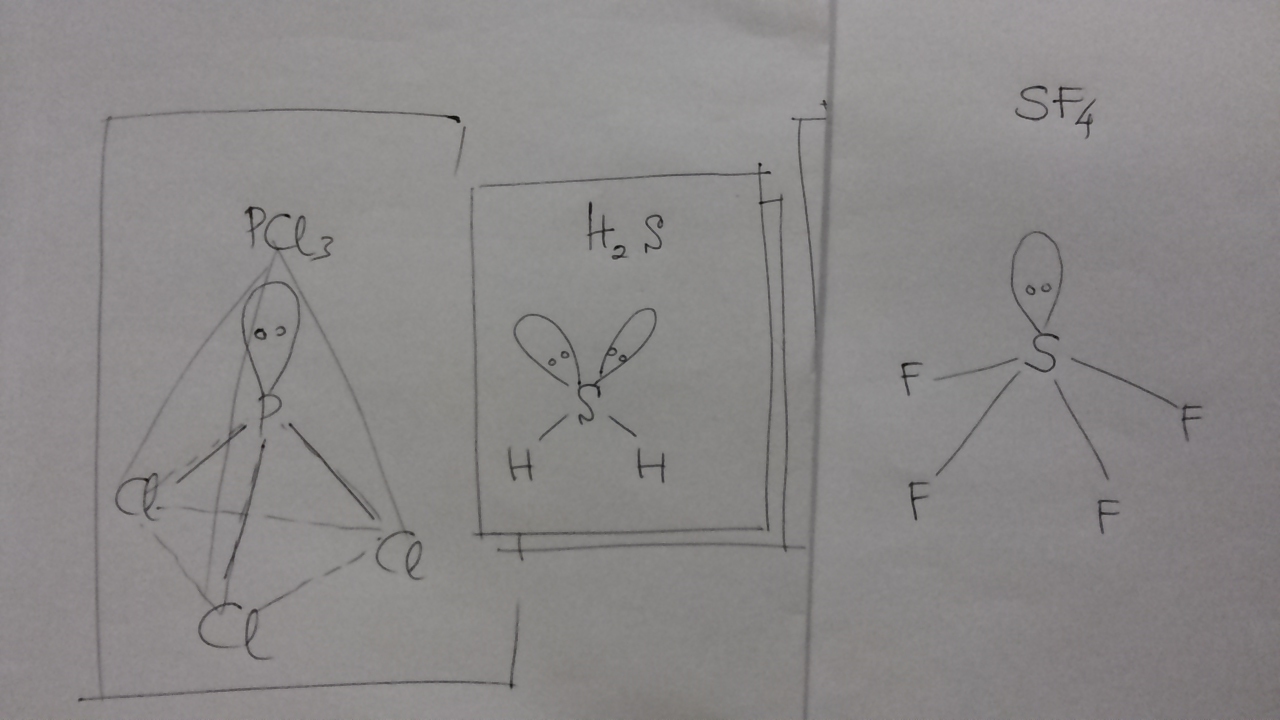 PCl₃
P
Cl
Cl
Cl
H₂S
S
H H
SF₄
S
F
F
F
F